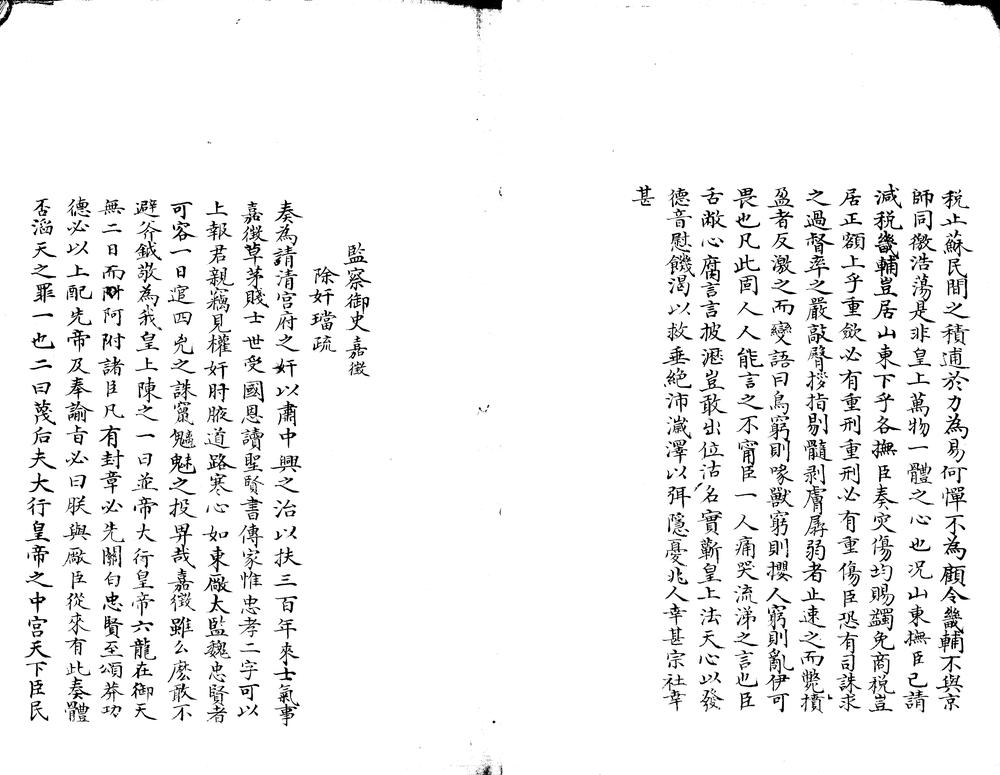 税止蘇民間之積逋於力為易何憚不為顧令畿輔不與京
師同徼浩蕩是非皇上萬物一體之心也况山東撫臣已請
減税畿輔豈居山東下乎各撫臣奏灾傷均賜蠲免商税豈
居正額上乎重歛必有重刑重刑必有重傷臣恐有司誅求
之過督率之嚴敲臀拶指剔髓剥膚孱弱者止速之而斃擯
盈者反激之而變語曰鳥窮則喙獸窮則攫人窮則亂伊可
畏也凡此固人人能言之不甯臣一人痛哭流涕之言也臣
舌敝心腐言言披瀝豈敢出位沽名實蘄皇上法天心以發
德音慰饑渴以救垂絶沛濊澤以弭隱憂兆人幸甚宗社幸
甚
監察御史嘉徵
除奸璫疏
奏為請清宮府之奸以肅中興之治以扶三百年來士氣事
嘉徵草茅賤士世受國恩讀聖賢書傳家惟忠孝二字可以
上報君親竊見權奸肘腋道路寒心如東廠太監魏忠賢者
可容一日逭四凶之誅竄魑魅之投畀哉嘉徵雖么麽敢不
避斧鉞敬為我皇上陳之一曰並帝大行皇帝六龍在御天
無二日而阿附諸臣凡有封章必先關白忠賢至頌莽功
德必以上配先帝及奉諭旨必曰朕與廠臣從來有此奏體
否滔天之罪一也二曰蔑后夫大行皇帝之中宮天下臣民